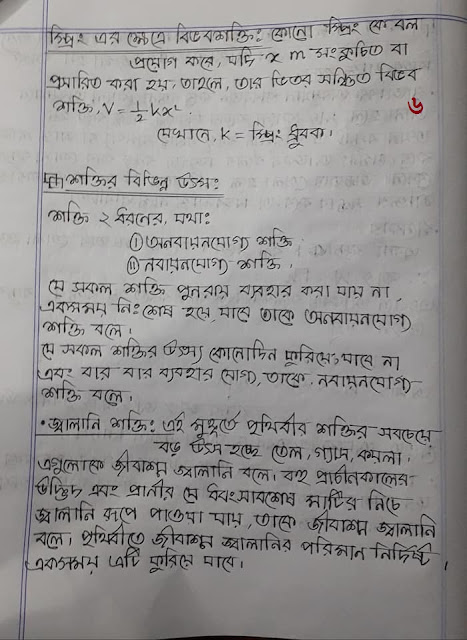 স্প্রিং এর ক্ষেত্রে বিভবশক্তি: কোনো স্প্রিং কে বল
প্রয়োগ করে, যদি x m সংকুচিত বা
প্রসারিত করা হয়, তাহলে, তার ভিতর সঞ্চিত বিভব
শক্তি, V = ½ kx²
৬
যেখানে, k = স্প্রিং ধ্রুবক।
শক্তির বিভিন্ন উৎস:
শক্তি ২ ধরনের, যথা:
(i) অনবায়নযোগ্য শক্তি
(ii) নবায়নযোগ্য শক্তি
যে সকল শক্তি পুনরায় ব্যবহার করা যায় না
একসময় নিঃশেষ হয়ে যাবে তাকে অনবায়নযোগ্য
শক্তি বলে।
যে সকল শক্তির উৎস কোনোদিন ফুরিয়ে যাবে না
এবং বার বার ব্যবহার যোগ্য, তাকে নবায়নযোগ্য
শক্তি বলে।
• জ্বালানি শক্তি: এই মুহূর্তে পৃথিবীর শক্তির সবচেয়ে
বড় উৎস হচ্ছে তেল, গ্যাস, কয়লা।
এগুলোকে জীবাশ্ম জ্বালানি বলে। বহু প্রাচীনকালের
উদ্ভিদ এবং প্রানীর যে ধ্বংসাবশেষ মাটির নিচে
জ্বালানি রূপে পাওয়া যায়, তাকে জীবাশ্ম জ্বালানি
বলে। পৃথিবীতে জীবাশ্ম জ্বালানির পরিমান নির্দিষ্ট
একসময় এটি ফুরিয়ে যাবে।